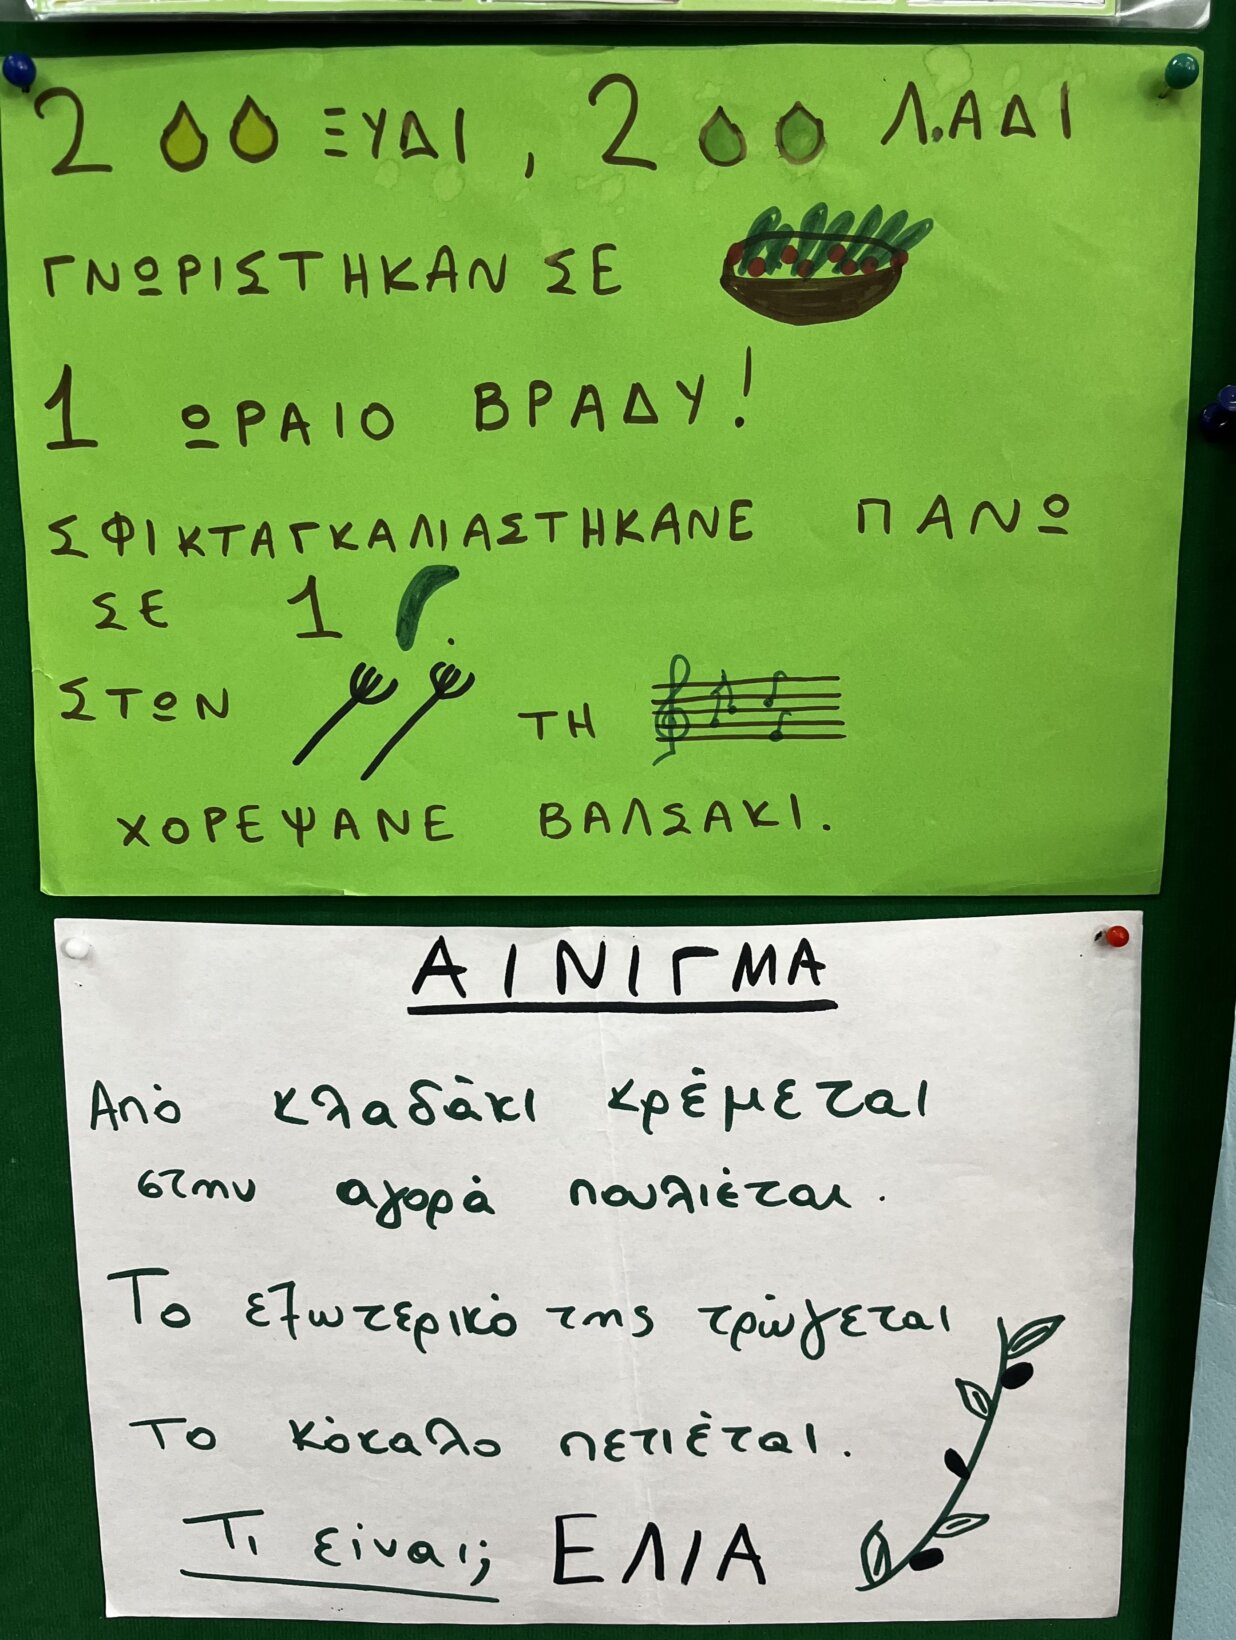 2 ΞΥΔΙ, 2 ΛΑΔΙ
ΓΝΩΡΙΣΤΗΚΑΝ ΣΕ
1 ΩΡΑΙΟ ΒΡΑΔΥ!
ΣΦΙΚΤΑΓΚΑΛΙΑΣΤΗΚΑΝΕ ΠΑΝΩ
ΣΕ 1 .
ΣΤΩΝ ΤΗ
ΧΟΡΕΨΑΝΕ ΒΑΛΣΑΚΙ.
ΑΙΝΙΓΜΑ
Από κλαδάκι κρέμεται
στην αγορά πουλιέται.
Το εξωτερικό της τρώγεται
το κόκαλο πετιέται.
Τι είναι; ΕΛΙΑ